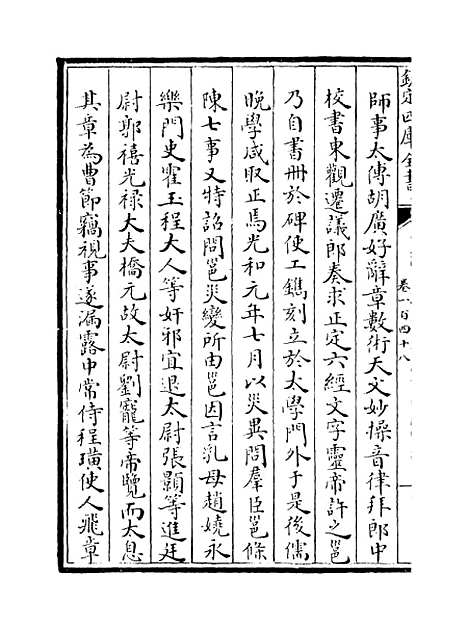 欽定四庫全書
卷一百四十八
師事太傅胡廣好辭章數術天文妙操音律拜郎中
校書東觀遷議郎奏求正定六經文字靈帝許之邕
乃自書册於碑使工鐫刻立於太學門外于是後儒
晚學咸取正焉光和元年七月以災異問羣臣邕條
陳七事又特詔問邕災變所由邕因言乳母趙嬈永
樂門史霍玉程大人等奸邪宜退太尉張顥等進廷
尉郭禧光禄大夫橋元故太尉劉寵等帝覽而太息
其章為曹節竊視事遂漏露中常侍程璜使人飛章